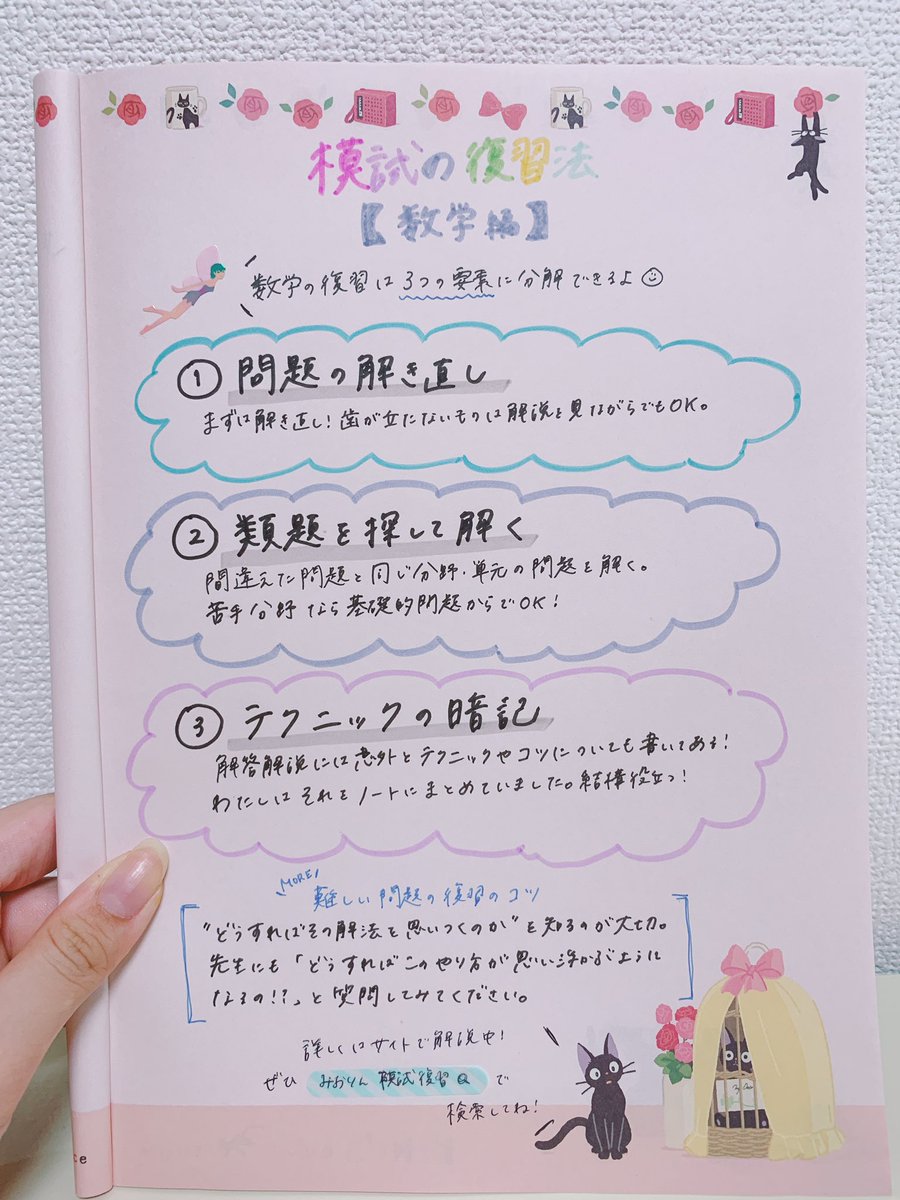 模試の復習法
【数学編】
数学の復習は3つの要素に分解できるよ
① 問題の解き直し
まずは解き直し!歯が立たないものは解説を見ながらでもOK。
② 類題を探して解く
間違えた問題と同じ分野・単元の問題を解く。
苦手分野なら基礎的問題からでOK!
③ テクニックの暗記
解答解説には意外とテクニックやコツについても書いてある!
わたしはそれをノートにまとめていました。結構役立つ!
MORE!
難しい問題の復習のコツ
"どうすればその解法を思いつくのか"を知るのが大切。
先生にも「どうすればこのやり方が思い浮かぶように
なるの!?」と質問してみてください。
詳しくはサイトで解説中!
ぜひ みおりん 模試復習 で
検索してね!